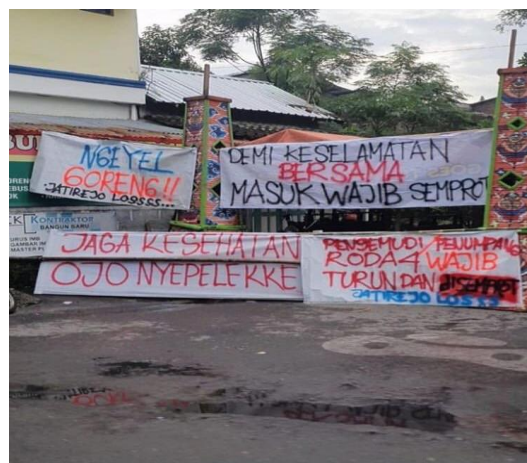 NGEYEL
GORENG!!
JATIREJO LOSSS...
DEMI KESELAMATAN
BERSAMA
MASUK WAJIB SEMPROT
KONTRAKTOR
BANGUN BARU
JAGA KESEHATAN
OJO NYEPELEKKE
PENGEMUDI/PENUMPANG
RODA4 WAJIB
TURUN DAN DISEMPROT
JATIREJO LOSSS